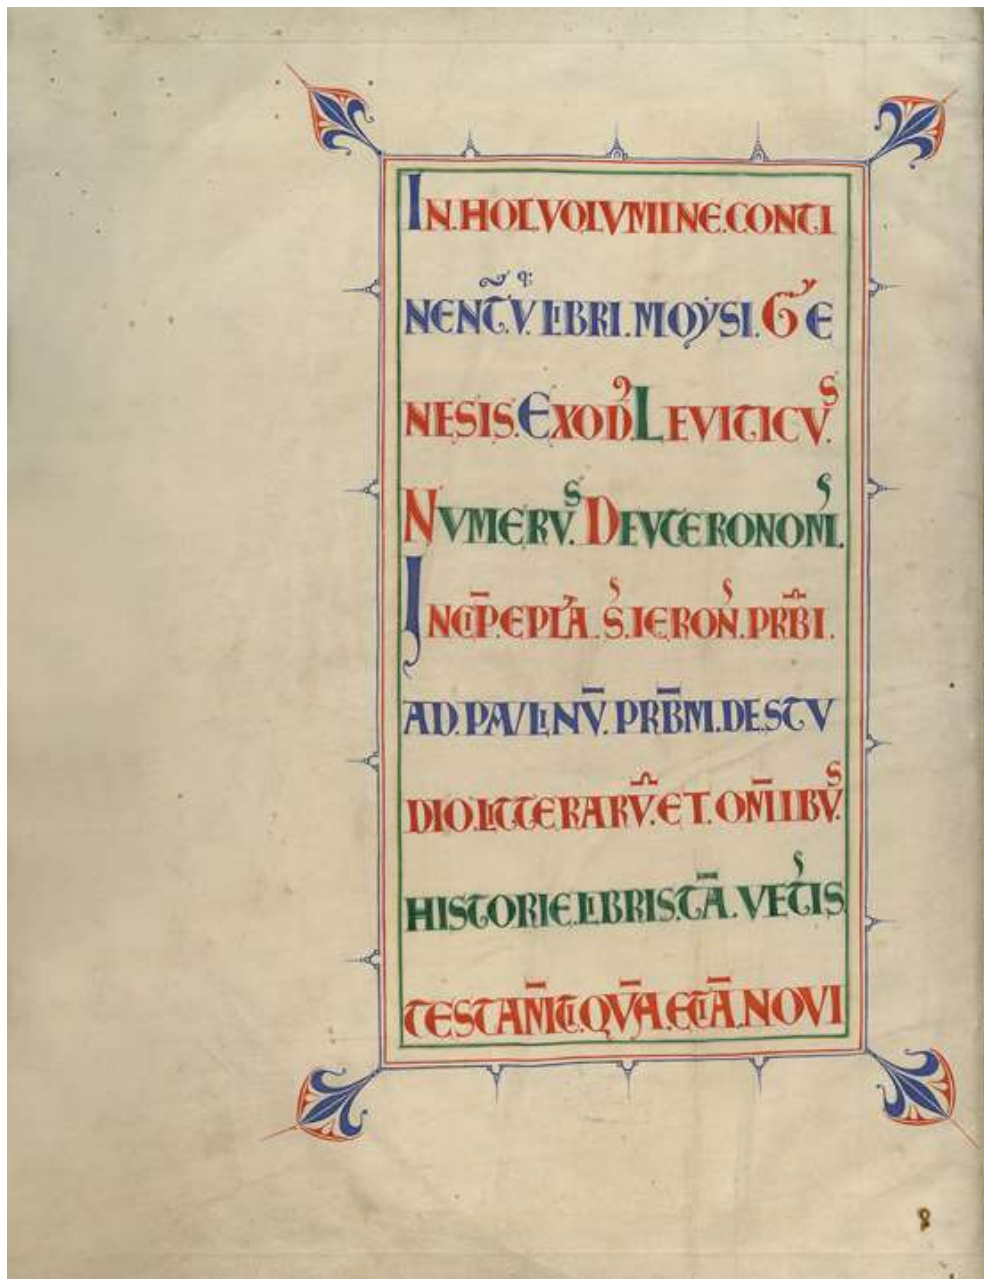 IN.HOC.VOLVMINE.CONTI
NENT̃.V.ꝗ LIBRI.MOẎSI.GE
NESIS.EXOD᾽.LEVITICVˢ.
NVMERVˢ.DEVTERONOMˢ.
INCIP̄.EPL̄A.Sˢ.IERONˢ.PRB̄I.
AD.PAVLINV̄.PRB̄M.DE.STV
DIO.LITTERARV̄.ET.OM̄IBVˢ.
HISTORIE.LIBRIS.TĀ.VETˢIS.
TESTAM̄TI.QVĀ.ETIĀ.NOVI